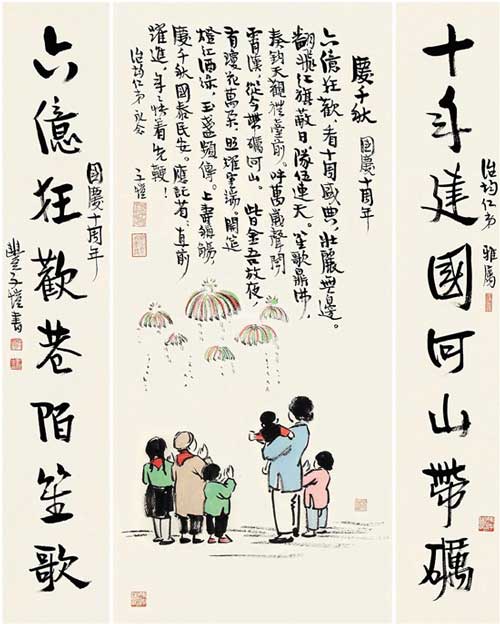 十年建國河山帶礪
治均仁弟 雅属
慶千秋 國慶十周年
六億狂歡。看十周國典,壯麗無邊。
翻飛紅旗蔽日,隊伍連天。笙歌鼎沸,
奏鈞天觀禮臺前。呼萬歲聲聞
霄漢,從今帶礪河山。此日金吾放夜,
有瓊花萬朵,照耀雲端。開筵
江酒,玉盞頻傳。上壽稱觴
慶千秋國泰民安。應記著:直前
躍進,年〻快着先鞭!
治均仁弟 永念 子愷
六億狂歡巷陌笙歌
國慶十周年
豐子愷書